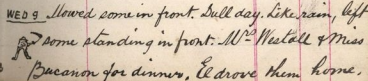 WED 9 Mowed some in front. Dull day. Like rain, left
some standing in front. Mrs Westall & Miss
Bucanon for dinner. El drove them home.